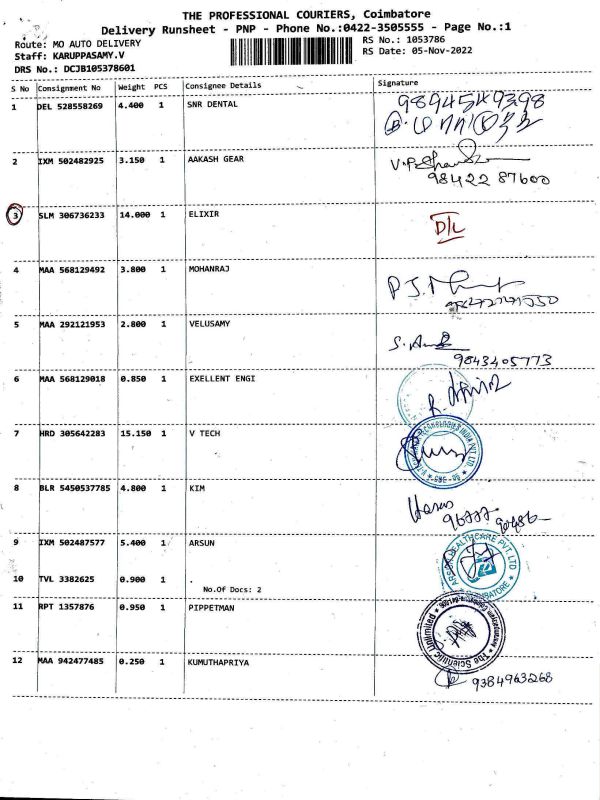 THE PROFESSIONAL COURIERS, Coimbatore
Delivery Runsheet - PNP - Phone No.:0422-3505555 - Page No.:1
Route: MO AUTO DELIVERY
RS No.: 1053786
Staff: KARUPPASAMY.V
RS Date: 05-Nov-2022
DRS No.: DCJB105378601
S No Consignment No Weight PCS Consignee Details Signature
1 DEL 528558269 4.400 1 SNR DENTAL 9894549398
2 IXM 502482925 3.150 1 AAKASH GEAR
98422 87600
3 SLM 306736233 14.000 1 ELIXIR D/L
4 MAA 568129492 3.800 1 MOHANRAJ
5 MAA 292121953 2.800 1 VELUSAMY
9843405773
6 MAA 568129018 0.850 1 EXELLENT ENGI
7 HRD 305642283 15.150 1 V TECH
8 BLR 5450537785 4.800 1 KIM
9 IXM 502487577 5.400 1 ARSUN
HEALTHCARE PVT. LTD
COIMBATORE
10 TVL 3382625 0.900 1
No.Of Docs: 2
11 RPT 1357876 0.950 1 PIPPETMAN
The Scientific Unlimited
12 MAA 942477485 0.250 1 KUMUTHAPRIYA
9384963268